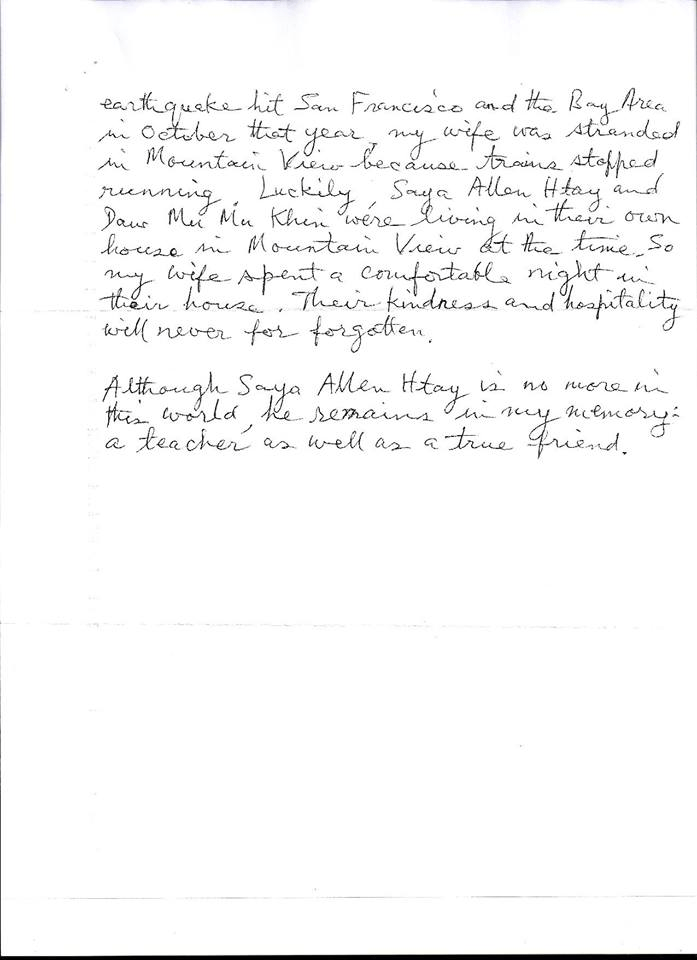 earthquake hit San Francisco and the Bay Area
in October that year, my wife was stranded
in Mountain View because trains stopped
running. Luckily, Saya Allen Htay and
Daw Mu Mu Khin were living in their own
house in Mountain View at the time. So
my wife spent a comfortable night in
their house. Their kindness and hospitality
will never for forgotten.
Although Saya Allen Htay is no more in
this world, he remains in my memory:
a teacher, as well as a true friend.